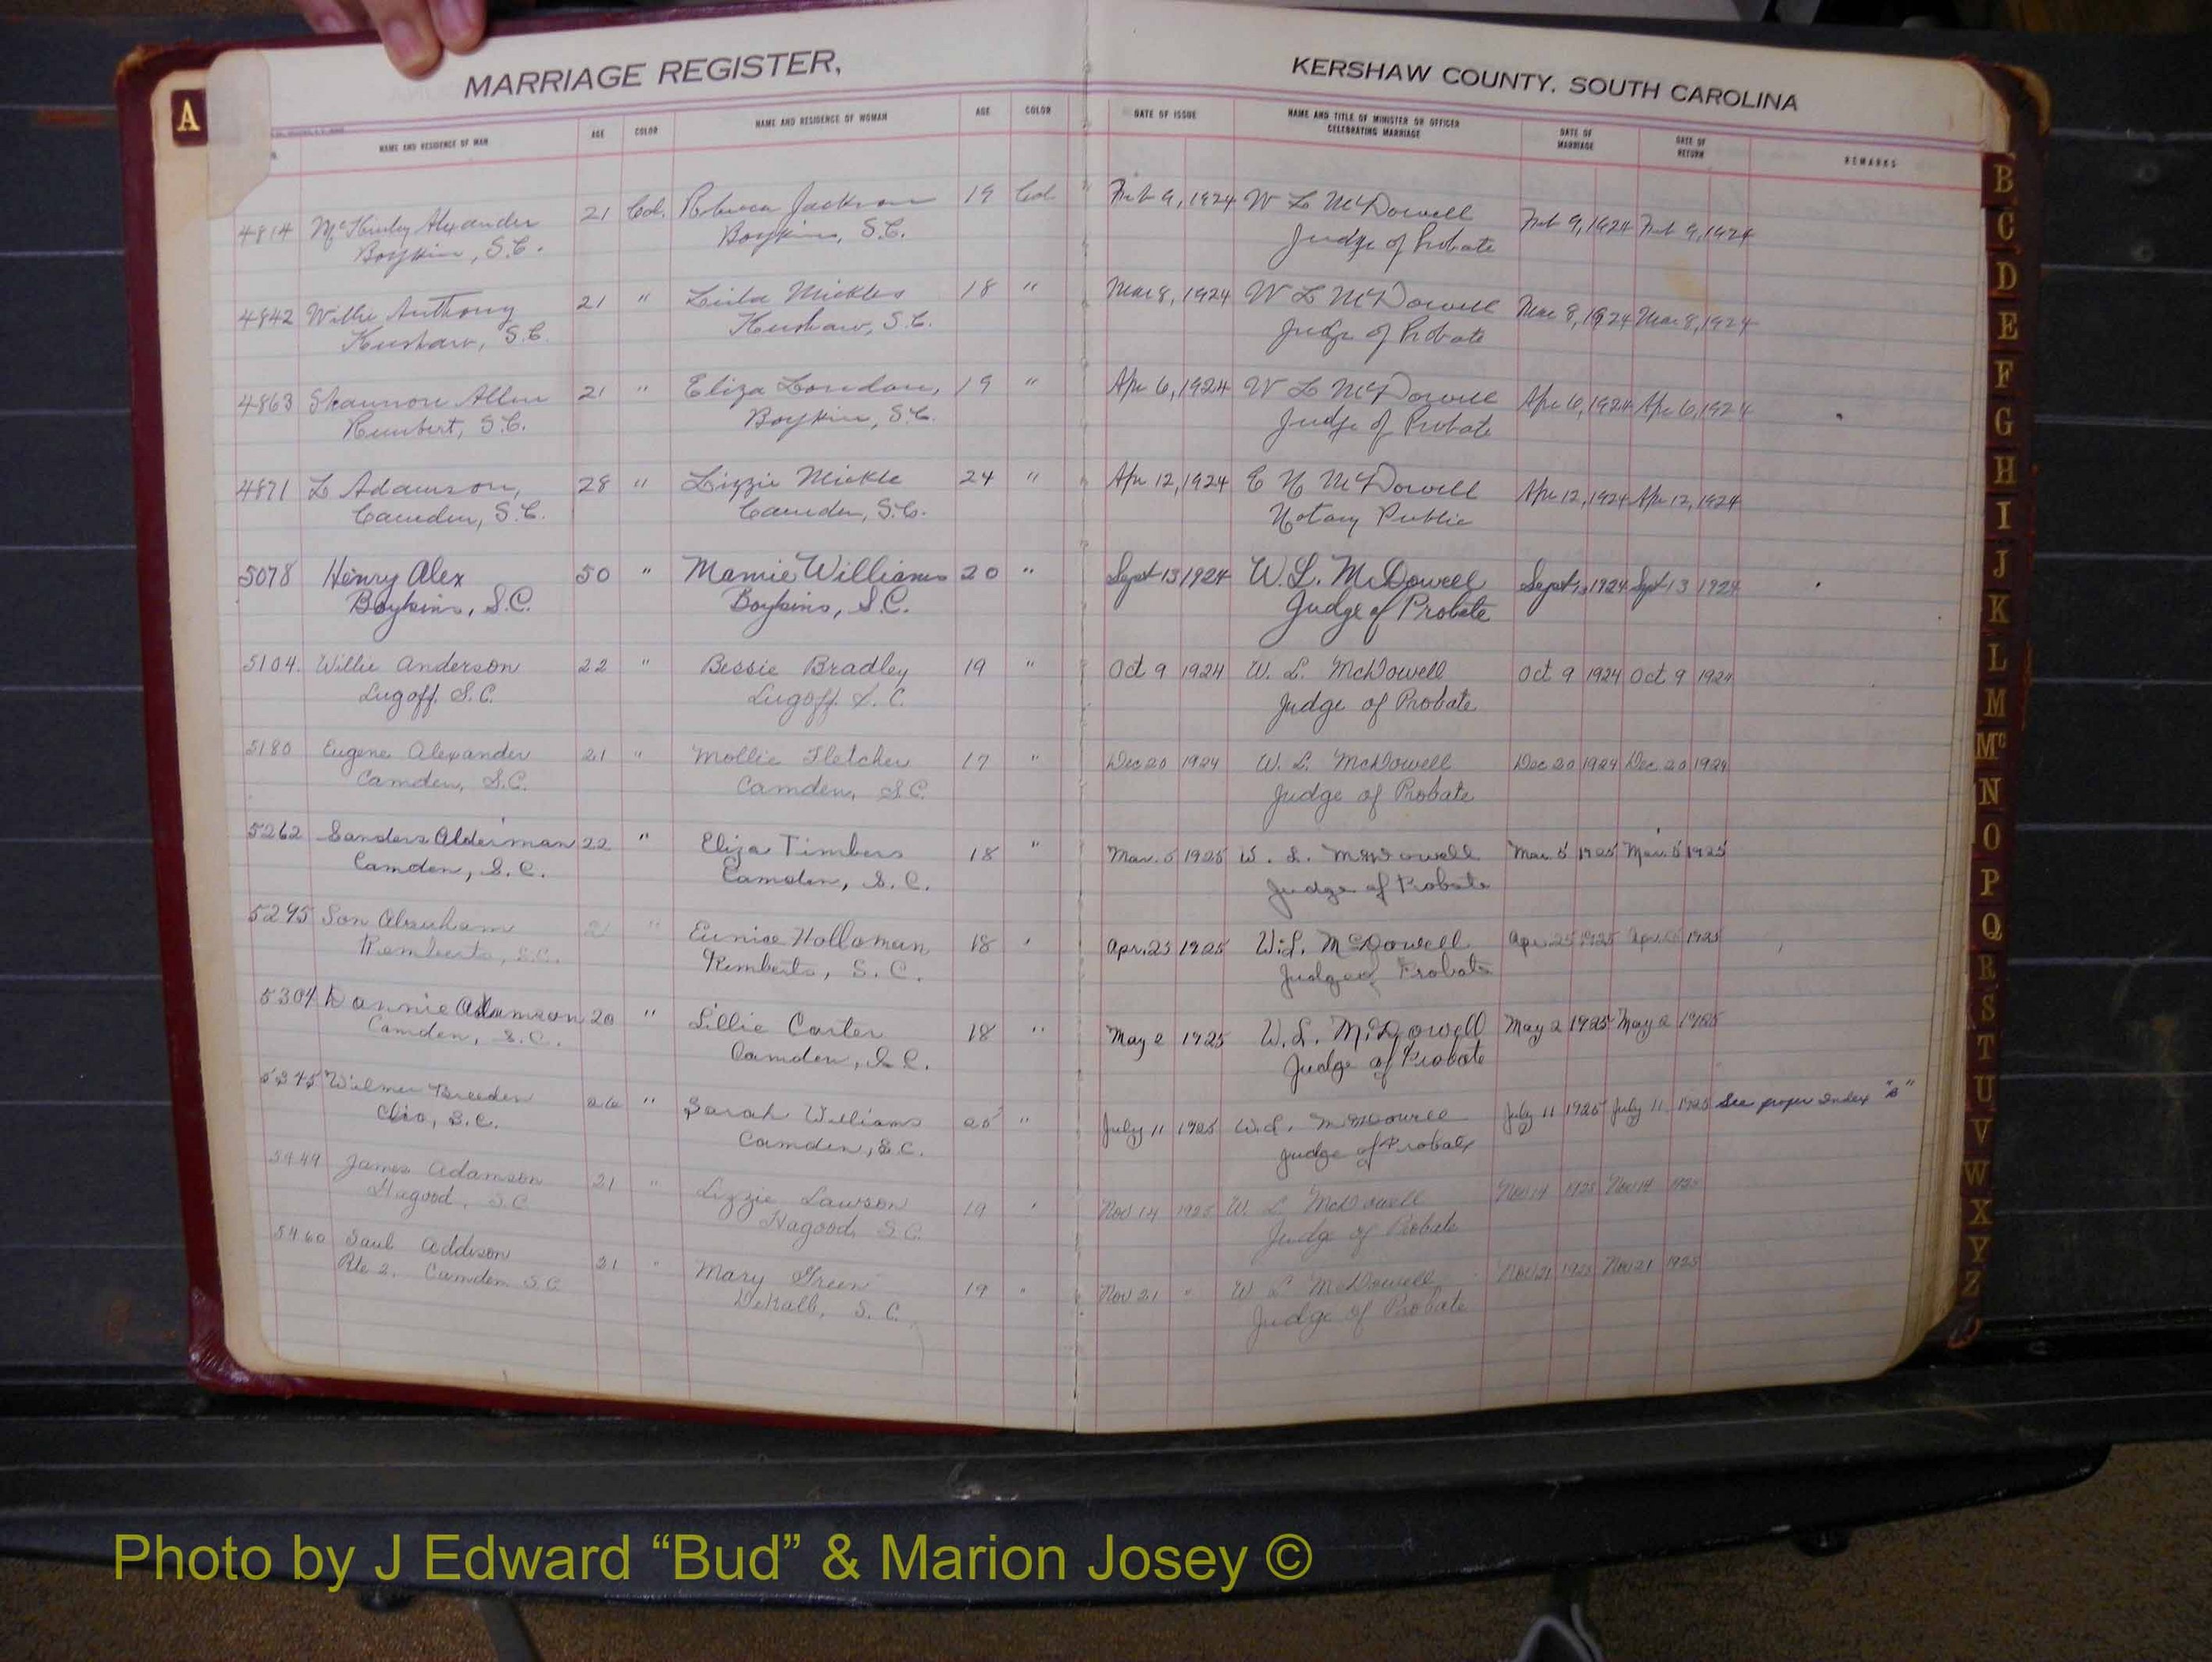 MARRIAGE REGISTER,
KERSHAW COUNTY, SOUTH CAROLINA
A
NAME AND RESIDENCE OF MAN AGE COLOR NAME AND RESIDENCE OF WOMAN AGE COLOR DATE OF ISSUE NAME AND TITLE OF MINISTER OR OFFICER CELEBRATING MARRIAGE DATE OF MARRIAGE DATE OF RETURN REMARKS
4814 McKinley Alexander 21 Col. Rebecca Jackson 19 Col Feb 9, 1924 W L McDowell Feb 9, 1924 Feb 9, 1924
Boykin, S.C. Boykin, S.C. Judge of Probate
4842 Willie Anthony 21 " Leila Mickles 18 " Mar 8, 1924 W L McDowell Mar 8, 1924 Mar 8, 1924
Kershaw, S.C. Kershaw, S.C. Judge of Probate
4863 Shannon Allen 21 " Eliza London, 19 " Apr 6, 1924 W L McDowell Apr 6, 1924 Apr 6, 1924
Rembert, S.C. Boykin, S.C. Judge of Probate
4871 L Adamson, 28 " Lizzie Mickle 24 " Apr 12, 1924 E N McDowell Apr 12, 1924 Apr 12, 1924
Camden, S.C. Camden, S.C. Notary Public
5078 Henry Alex 50 " Mamie Williams 20 " Sept 13 1924 W. L. McDowell Sept 13 1924 Sept 13 1924
Boykins, S.C. Boykins, S.C. Judge of Probate
5104. Willie Anderson 22 " Bessie Bradley 19 " Oct 9 1924 W. L. McDowell Oct 9 1924 Oct 9 1924
Lugoff. S.C. Lugoff. S. C. Judge of Probate
5180 Eugene Alexander 21 " Mollie Fletcher 17 " Dec 20 1924 W. L. McDowell Dec 20 1924 Dec. 20 1924
Camden, S.C. Camden, S.C. Judge of Probate
5262 Sanders Alderman 22 " Eliza Timbers 18 " Mar. 5 1925 W. L. McDowell Mar. 5 1925 Mar. 5 1925
Camden, S. C. Camden, S. C. Judge of Probate
5295 Son Abraham 21 " Eunice Holloman 18 " Apr. 25 1925 W. L. McDowell Apr. 25 1925 Apr. 1925
Remberts, S.C. Remberts, S. C. Judge of Probate
5304 Dannie Adamson 20 " Lillie Carter 18 " May 2 1925 W. L. McDowell May 2 1925 May 2 1925
Camden, S.C. Camden, S.C. Judge of Probate
5345 Wilmer Breeden 26 " Sarah Williams 25 " July 11 1925 W. L. McDowell July 11 1925 July 11, 1925 See proper Index "B"
Clio, S.C. Camden, S.C. Judge of Probate
5449 James Adamson 21 " Lizzie Lawson 19 " Nov 14 1925 W. L McDowell Nov 14 1925 Nov 14 1925
Hagood, S.C Hagood, S.C. Judge of Probate
5460 Saul Addison 21 " Mary Green 19 " Nov 21 " W L McDowell Nov 21 1925 Nov 21 1925
Rte 2, Camden S.C DeKalb, S. C. Judge of Probate
B
C
D
E
F
G
H
I
J
K
L
M
Mc
N
O
P
Q
R
S
T
U
V
W
X
Y
Z
Photo by J Edward “Bud” & Marion Josey ©